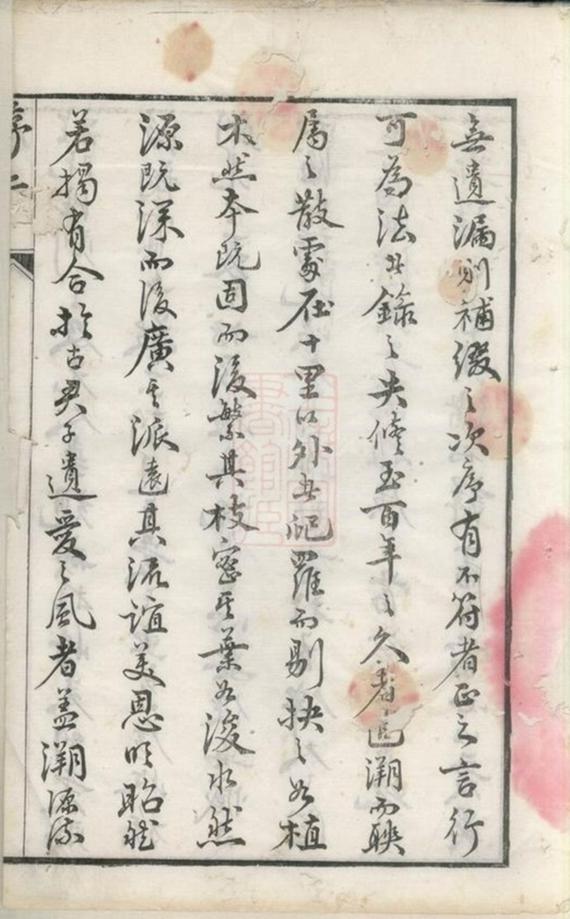 無遺漏則補綴之次序有不符者正之言行
可為法者錄之失修至百年之久者追溯而聯
屬之散處在十里以外者爬羅而剔抉之如植
木然本既固而後繁其枝密其葉如浚水然
源既深而後廣其派遠其流誼美恩明昭然
若揭有合於古君子遺愛之風者蓋溯源
序二